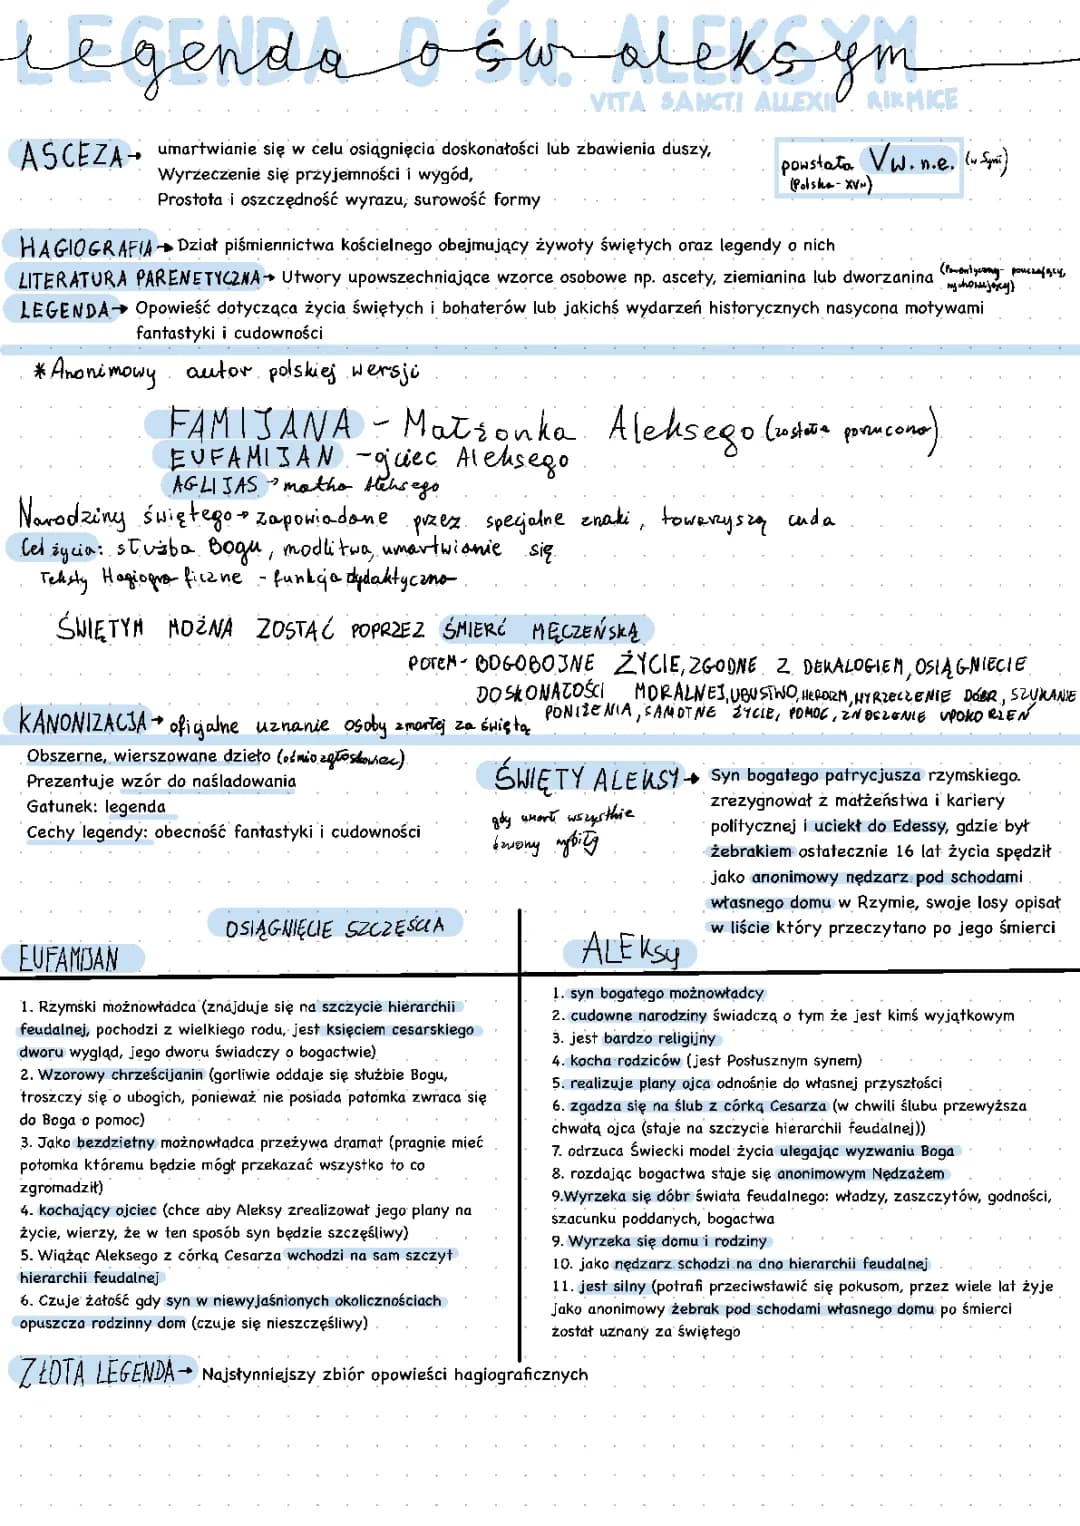 LEGENDA O ŚW. ALEKSYM
legenda o św aleksym
VITA SANCTI ALLEXII RIKMICE
ASCEZA→ umartwianie się w celu osiągnięcia doskonałości lub zbawienia duszy,
Wyrzeczenie się przyjemności i wygód,
Prostota i oszczędność wyrazu, surowość formy
powstała V w. n.e. (w Syrii)
(Polska - XV w)
HAGIOGRAFIA→ Dział piśmiennictwa kościelnego obejmujący żywoty świętych oraz legendy o nich
LITERATURA PARENETYCZNA→ Utwory upowszechniające wzorce osobowe np. ascety, ziemianina lub dworzanina (Parentyczny- pouczający,
wychowujący)
LEGENDA→ Opowieść dotycząca życia świętych i bohaterów lub jakichś wydarzeń historycznych nasycona motywami
fantastyki i cudowności
* Anonimowy autor polskiej wersji
FAMIJANA - Małżonka Aleksego (została porzucona)
EUFAMIJAN - ojciec Aleksego
AGLIJAS → matka Aleksego
Narodziny świętego → zapowiadane przez specjalne znaki, towarzyszą cuda
Cel życia: służba Bogu, modlitwa, umartwianie się
Teksty Hagiograficzne - funkcja dydaktyczna
ŚWIĘTYM MOŻNA ZOSTAĆ POPRZEZ ŚMIERĆ MĘCZEŃSKĄ
POTEM- BOGOBOJNE ŻYCIE, ZGODNE Z DEKALOGIEM, OSIĄGNIECIE
DOSKONAŁOŚCI MORALNEJ, UBUSTWO, HEROIZM, WYRZECZENIE DÓBR, SZUKANIE
PONIŻENIA, SAMOTNE ŻYCIE, POMOC, ZNOSZENIE UPOKORZEŃ
KANONIZACJA → oficjalne uznanie osoby zmarłej za świętą
Obszerne, wierszowane dzieło (ośmiozgłoskowiec)
Prezentuje wzór do naśladowania
Gatunek: legenda
Cechy legendy: obecność fantastyki i cudowności
ŚWIĘTY ALEKSY→ Syn bogatego patrycjusza rzymskiego.
zrezygnował z małżeństwa i kariery
politycznej i uciekł do Edessy, gdzie był
żebrakiem ostatecznie 16 lat życia spędził
jako anonimowy nędzarz pod schodami
własnego domu w Rzymie, swoje losy opisał
w liście który przeczytano po jego śmierci
gdy umarł wszystkie
dzwony wybiły
OSIĄGNIĘCIE SZCZĘŚCIA
EUFAMIJAN
1. Rzymski możnowładca (znajduje się na szczycie hierarchii
feudalnej, pochodzi z wielkiego rodu, jest księciem cesarskiego
dworu wygląd, jego dworu świadczy o bogactwie)
2. Wzorowy chrześcijanin (gorliwie oddaje się służbie Bogu,
troszczy się o ubogich, ponieważ nie posiada potomka zwraca się
do Boga o pomoc)
3. Jako bezdzietny możnowładca przeżywa dramat (pragnie mieć
potomka któremu będzie mógł przekazać wszystko to co
zgromadził)
4. kochający ojciec (chce aby Aleksy zrealizował jego plany na
życie, wierzy, że w ten sposób syn będzie szczęśliwy)
5. Wiążąc Aleksego z córką Cesarza wchodzi na sam szczyt
hierarchii feudalnej
6. Czuje żałość gdy syn w niewyjaśnionych okolicznościach
opuszcza rodzinny dom (czuje się nieszczęśliwy)
ALEKSY
1. syn bogatego możnowładcy
2. cudowne narodziny świadczą o tym że jest kimś wyjątkowym
3. jest bardzo religijny
4. kocha rodziców (jest Posłusznym synem)
5. realizuje plany ojca odnośnie do własnej przyszłości
6. zgadza się na ślub z córką Cesarza (w chwili ślubu przewyższa
chwałą ojca (staje na szczycie hierarchii feudalnej))
7. odrzuca Świecki model życia ulegając wyzwaniu Boga
8. rozdając bogactwa staje się anonimowym Nędzażem
9.Wyrzeka się dóbr świata feudalnego: władzy, zaszczytów, godności,
szacunku poddanych, bogactwa
9. Wyrzeka się domu i rodziny
10. jako nędzarz schodzi na dno hierarchii feudalnej
11. jest silny (potrafi przeciwstawić się pokusom, przez wiele lat żyje
jako anonimowy żebrak pod schodami własnego domu po śmierci
został uznany za świętego
ZŁOTA LEGENDA→ Najsłynniejszy zbiór opowieści hagiograficznych